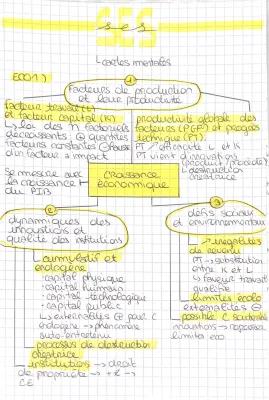 SES
ses
L cartes mentales
ECO1)
1
facteurs de production
et leur productivité
facteur travail (L)
et facteur capital (K)
↳ loi des rt factoriels
décroissants : ⊕ quantités
facteurs constantes ⊕ hausse
d'un facteur a impact
productivité globale des
facteurs (PGF) et progrès
technique (PT).
PT ↗ efficacité L et K
PT vient d'innovations
(produit / procédé)
↳ destruction
créatrice
Se mesure avec
la croissance
du PIB
croissance
économique
2
dynamiques des
innovations et
qualité des institutions
3
défis sociaux
et environnementaux
→ cumulatif et
endogène
• capital physique
• capital humain
• capital technologique
• capital public
↳ externalités ⊕ pour C
endogène → phénomène
auto-entretenu
→ processus de destruction
créatrice
→ institutions → droit
de propriété → +R →
CE
→ inégalités
de revenu
PT → substitution
entre K et L
→ faveur travail
qualifié
limites écolo
externalités ⊖
→ possible C soutenable
innovations → repousser
limites éco